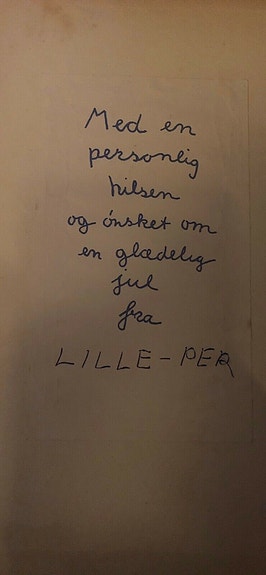 Med en
personlig
hilsen
og ønsket om
en glædelig
jul
fra
LILLE-PER